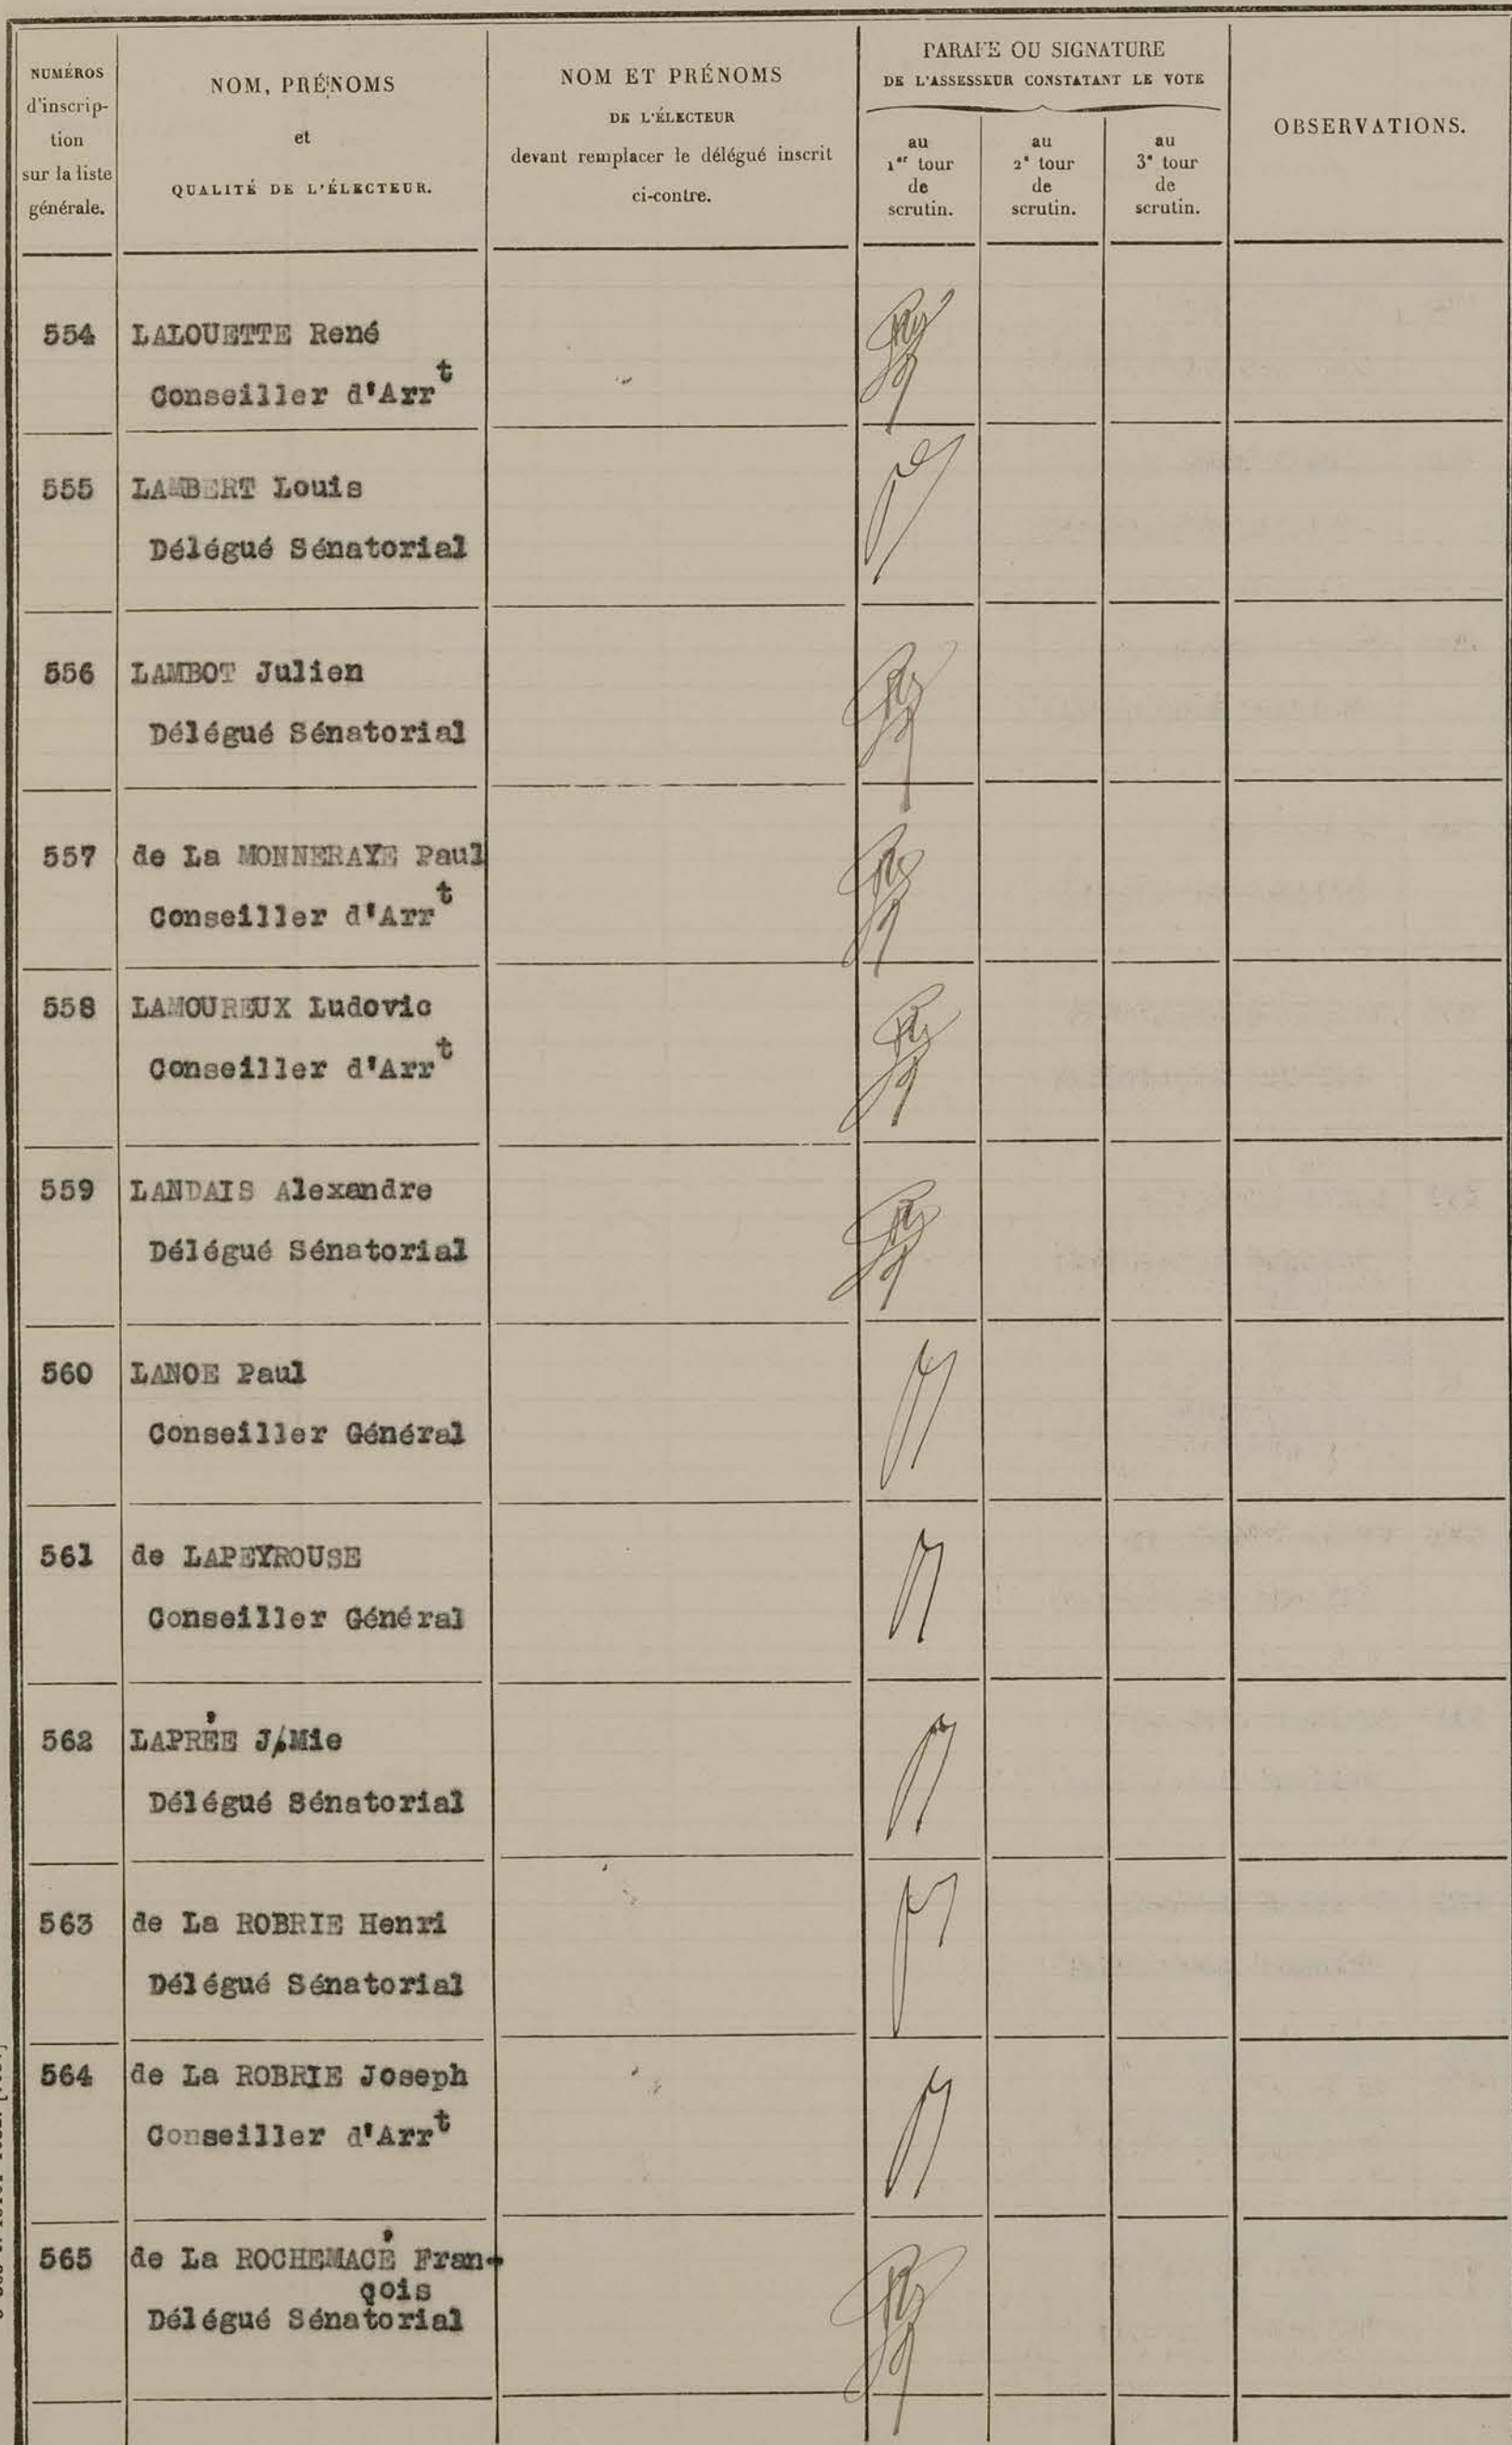 NUMÉROS
d'inscrip-
tion
sur la liste
générale.
NOM, PRÉNOMS
et
QUALITÉ DE L'ÉLECTEUR.
NOM ET PRÉNOMS
DE L'ÉLECTEUR
devant remplacer le délégué inscrit
ci-contre.
PARAFE OU SIGNATURE
DE L'ASSESSEUR CONSTATANT LE VOTE
au
1er tour
de
scrutin.
au
2e tour
de
scrutin.
au
3e tour
de
scrutin.
OBSERVATIONS.
554 LALOUETTE René
Conseiller d'Arrt
555 LAMBERT Louis
Délégué Sénatorial
556 LAMBOT Julien
Délégué Sénatorial
557 de La MONNERAYE Paul
Conseiller d'Arrt
558 LAMOUREUX Ludovic
Conseiller d'Arrt
559 LANDAIS Alexandre
Délégué Sénatorial
560 LANOE Paul
Conseiller Général
561 de LAPEYROUSE
Conseiller Général
562 LAPRÉE J/Mie
Délégué Sénatorial
563 de La ROBRIE Henri
Délégué Sénatorial
564 de La ROBRIE Joseph
Conseiller d'Arrt
565 de La ROCHEMACÉ Fran-
çois
Délégué Sénatorial